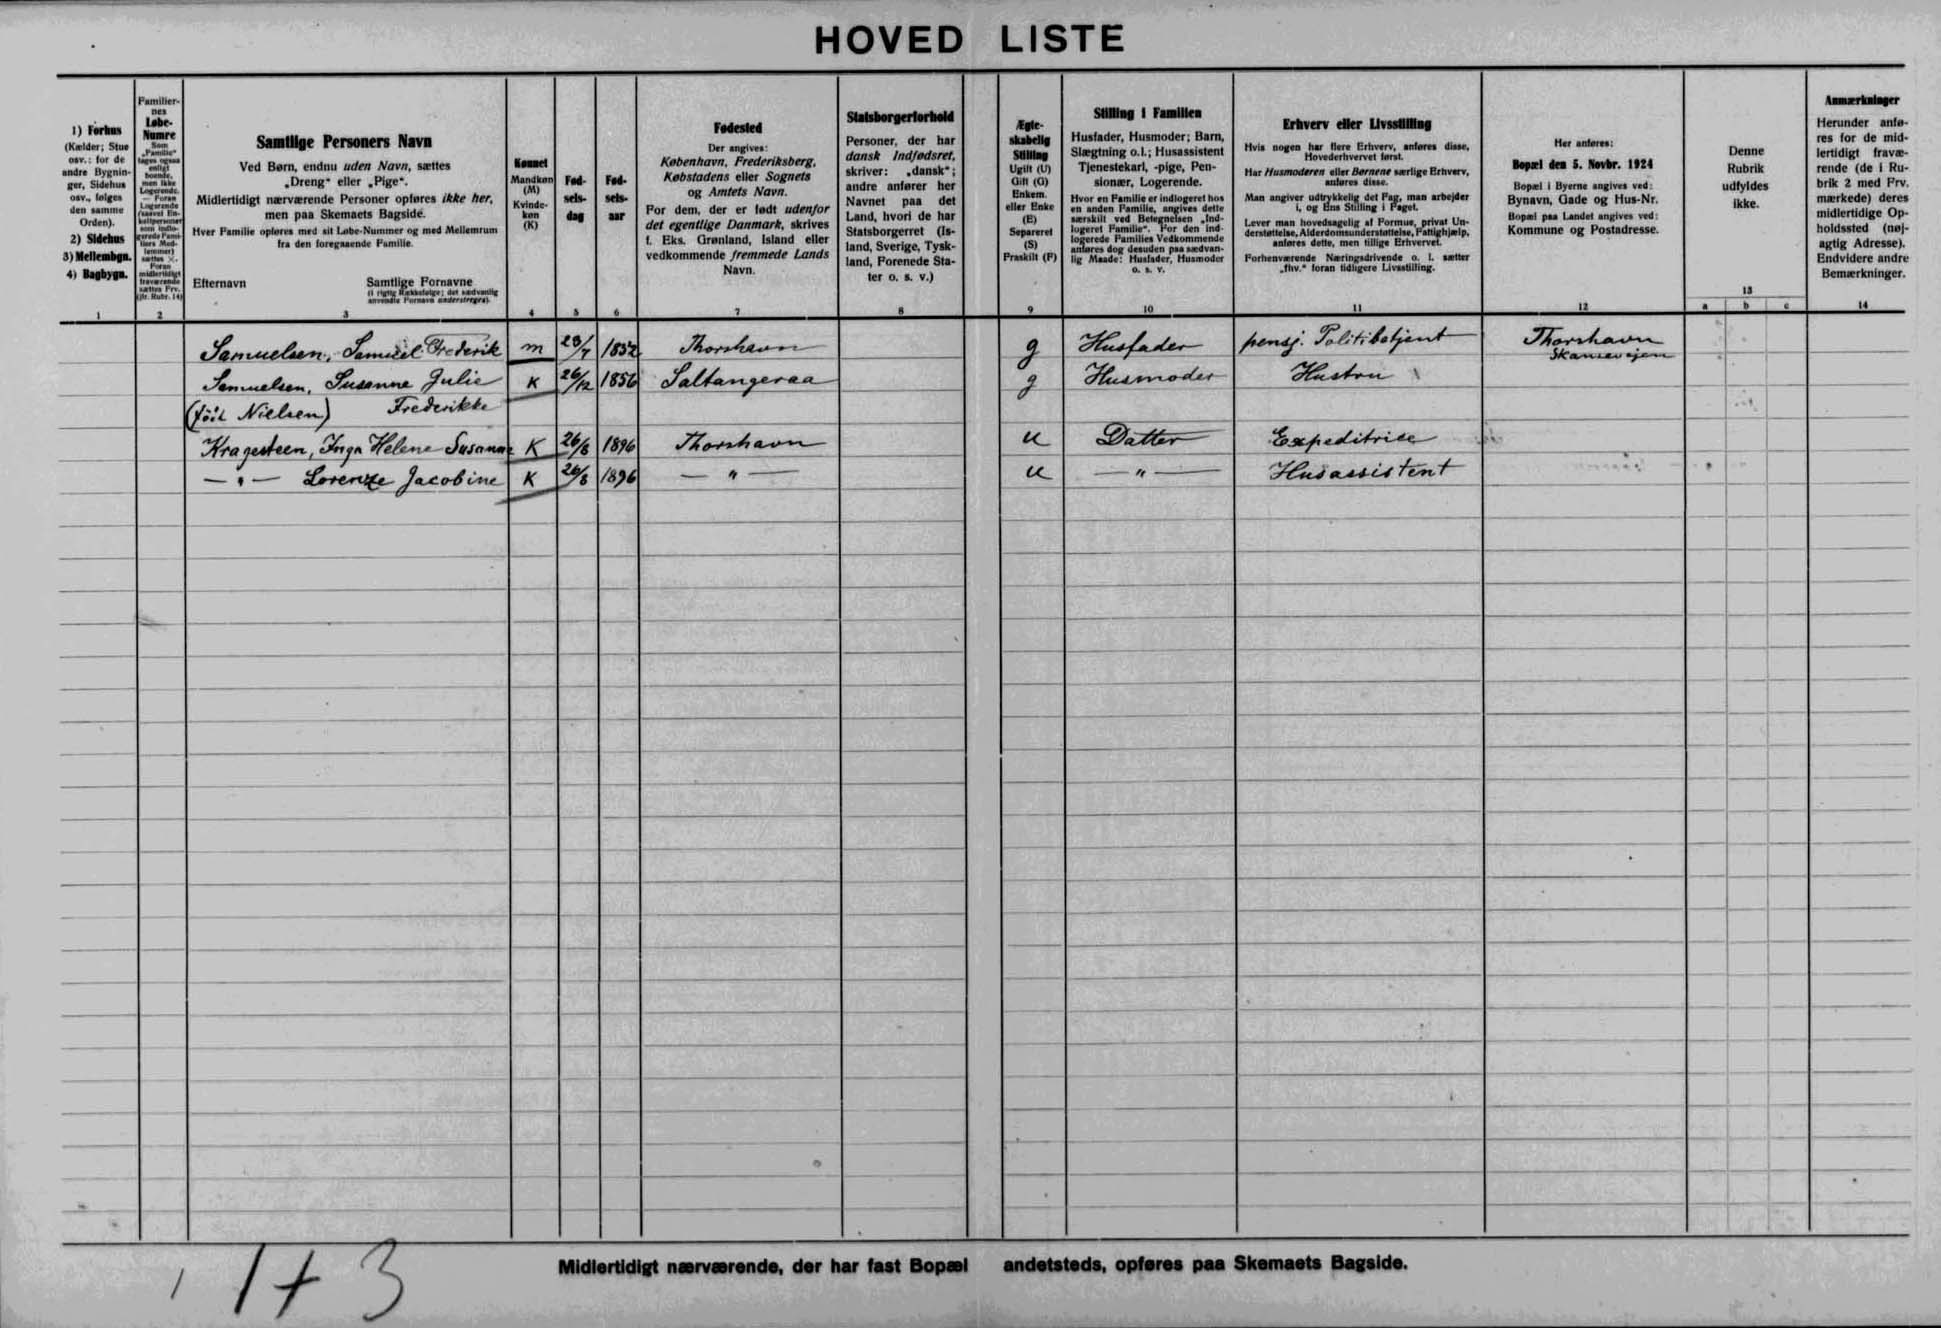 HOVED LISTE
1) Forhus
(Kælder; Stue
osv.: for de
andre Bygnin-
ger, Sidehus
osv., følges
den samme
Orden).
2) Sidehus
3) Mellembgn.
4) Bagbygn.
1
Familier-
nes
Løbe-
Numre
Som
„Familie“
tages ogsaa
enligt
boende,
men ikke
Logerende.
— Foran
Logerende
(saavel En-
keltpersoner
som indlo-
gerede Fami-
liers Med-
lemmer)
sættes ×.
Foran
midlertidigt
fraværende
sættes Frv.
(jfr. Rubr. 14)
2
Samtlige Personers Navn
Ved Børn, endnu uden Navn, sættes
„Dreng“ eller „Pige“.
Midlertidigt nærværende Personer opføres ikke her,
men paa Skemaets Bagside.
Hver Familie opføres med sit Løbe-Nummer og med Mellemrum
fra den foregaaende Familie.
Efternavn Samtlige Fornavne
(i rigtig Rækkefølge; det sædvanlig
anvendte Fornavn understreges).
3
Kønnet
Mandkøn
(M)
Kvinde-
køn
(K)
4
Fød-
sels-
dag
5
Fød-
sels-
aar
6
Fødested
Der angives:
København, Frederiksberg,
Købstadens eller Sognets
og Amtets Navn.
For dem, der er født udenfor
det egentlige Danmark, skrives
f. Eks. Grønland, Island eller
vedkommende fremmede Lands
Navn.
7
Statsborgerforhold
Personer, der har
dansk Indfødsret,
skriver: „dansk“;
andre anfører her
Navnet paa det
Land, hvori de har
Statsborgerret (Is-
land, Sverige, Tysk-
land, Forenede Sta-
ter o. s. v.)
8
Ægte-
skabelig
Stilling
Ugift (U)
Gift (G)
Enkem.
eller Enke
(E)
Separeret
(S)
Fraskilt (F)
9
Stilling i Familien
Husfader, Husmoder; Barn,
Slægtning o.l.; Husassistent
Tjenestekarl, -pige, Pen-
sionær, Logerende.
Hvor en Familie er indlogeret hos
en anden Familie, angives dette
særskilt ved Betegnelsen „Ind-
logeret Familie“. For den ind-
logerede Families Vedkommende
anføres dog desuden paa sædvan-
lig Maade: Husfader, Husmoder
o. s. v.
10
Erhverv eller Livsstilling
Hvis nogen har flere Erhverv, anføres disse,
Hovederhvervet først.
Har Husmoderen eller Børnene særlige Erhverv,
anføres disse.
Man angiver udtrykkelig det Fag, man arbejder
i, og Ens Stilling i Faget.
Lever man hovedsagelig af Formue, privat Un-
derstøttelse, Alderdomsunderstøttelse, Fattighjælp,
anføres dette, men tillige Erhvervet.
Forhenværende Næringsdrivende o. l. sætter
„fhv.“ foran tidligere Livsstilling.
11
Her anføres:
Bopæl den 5. Novbr. 1924
Bopæl i Byerne angives ved:
Bynavn, Gade og Hus-Nr.
Bopæl paa Landet angives ved:
Kommune og Postadresse.
12
Denne
Rubrik
udfyldes
ikke.
13
a b c
Anmærkninger
Herunder anfø-
res for de mid-
lertidigt fravæ-
rende (de i Ru-
brik 2 med Frv.
mærkede) deres
midlertidige Op-
holdssted (nøj-
agtig Adresse).
Endvidere andre
Bemærkninger.
14
Samuelsen, Samuel Frederik m 23/7 1852 Thorshavn g Husfader pensj. Politibetjent Thorshavn
Skansevejen
Samuelsen, Susanne Julie K 26/12 1856 Saltangeraa g Husmoder Hustru
(föd Nielsen) Frederikke
Kragesteen, Inga Helene Susanne K 26/8 1896 Thorshavn u Datter Expeditrice
— " — Lorenze Jacobine K 26/8 1896 — " — u — " — Husassistent
Midlertidigt nærværende, der har fast Bopæl andetsteds, opføres paa Skemaets Bagside.
1 + 3